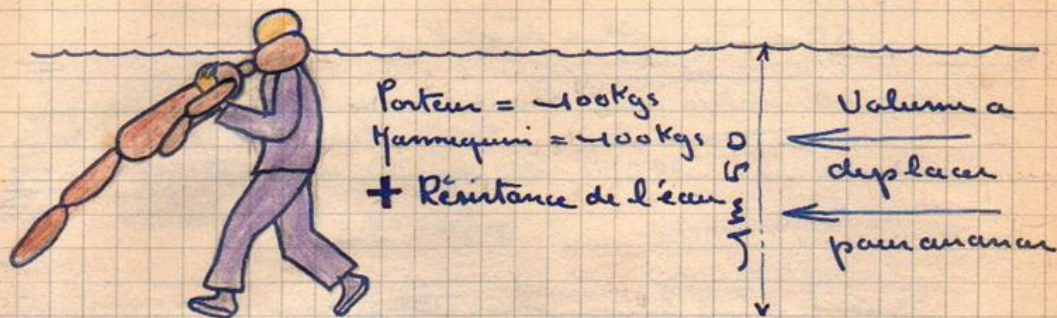 Porteur = 100Kgs
Mannequin = 100Kgs
+ Résistance de l'eau
1m50
Volume a
deplacer
pour avancer